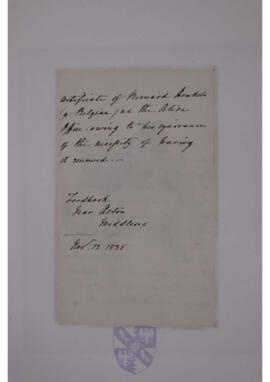 certificate of Bernard Henkels
(a Belgian) at the Alien
Office, owing to his ignorance
of the necessity of having
it renewed.
Fordhook
Near Acton
Middlesex
Nov. 12. 1835